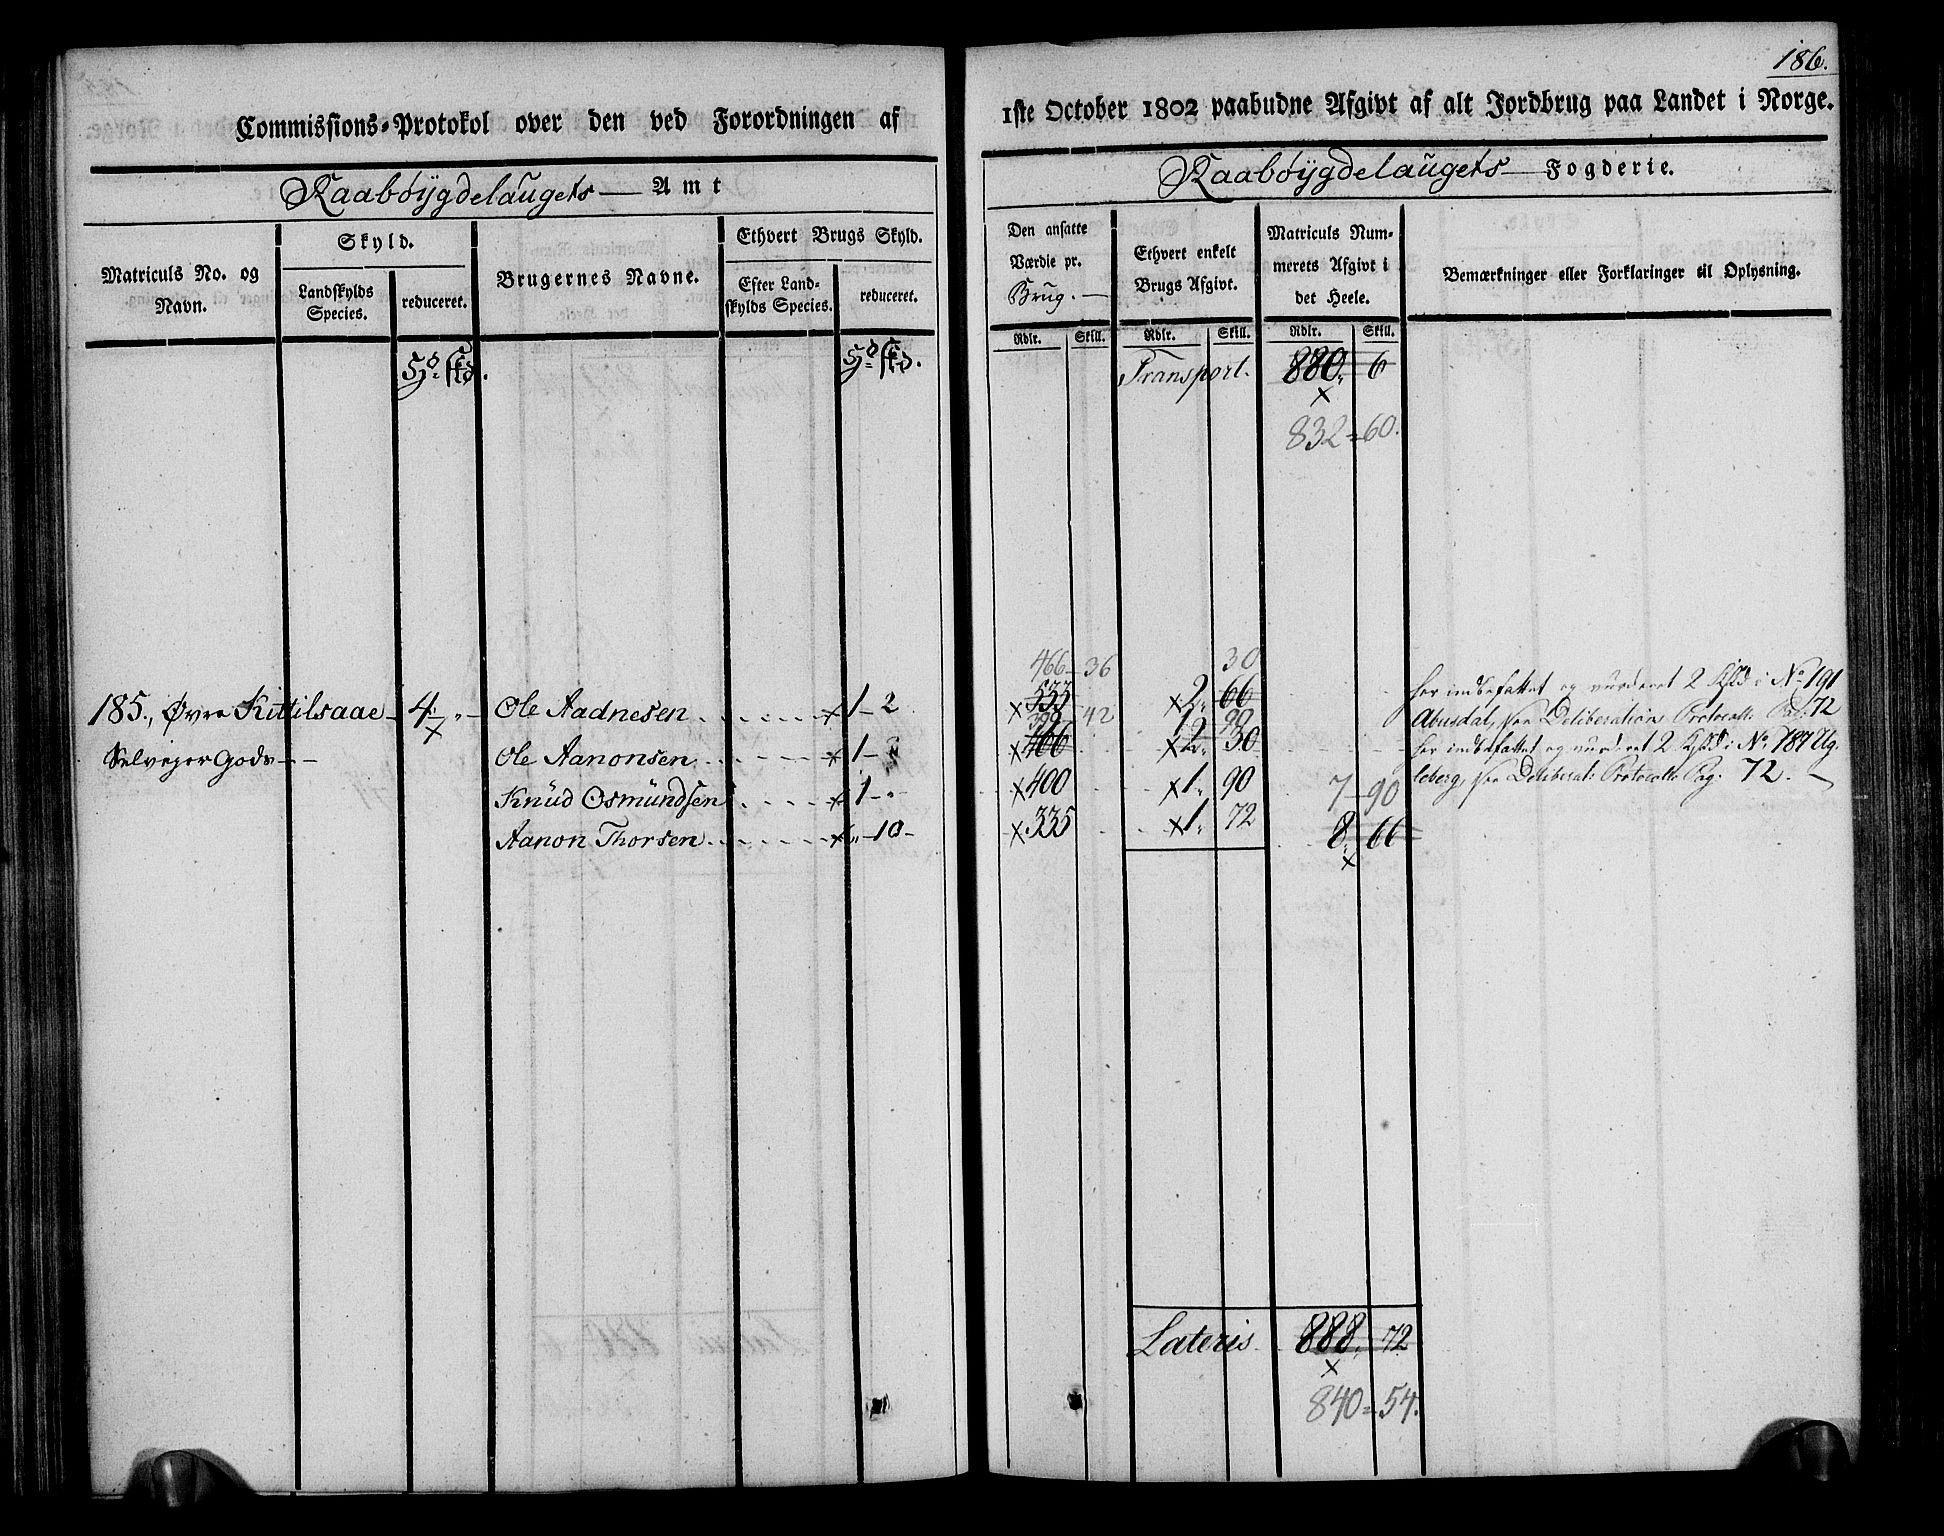 186.
Commissions-Protokol over den ved Forordningen af
1ste October 1802 paabudne Afgivt af alt Jordbrug paa Landet i Norge.
Raabøygdelaugets Amt
Raabøygdelaugets Fogderie.
Matriculs No. og Navn.
Skyld.
Landskylds Species.
reduceret.
Brugernes Navne.
Ethvert Brugs Skyld.
Efter Landskylds Species.
reduceret.
Den ansatte Værdie pr. Brug.
Ethvert enkelt Brugs Afgivt.
Matriculs Nummerets Afgivt i det Heele.
Bemærkninger eller Forklaringer til Oplysning.
Rdlr. Skill. Rdlr. Skill. Rdlr. Skill.
Transport. 880. 6
832 = 60.
466 - 36 30
185., Øvre Kittilsaae - 4 - „ - Ole Aadnesen . . . . . x 1 - 2 x 533 x 2„ 66 her indbefattet og vurderet 2 Hd i No 191
42 90 Abusdal, see Deliberations Protocoll Pag: 72
Selveyer Gods - - Ole Aanonsen . . . . x 1 - x 466 x 2„ 30 her indbefattet og vurderet 2 Hd i No 187 Ug-
Knüd Osmündsen . . . . x 1 - „ x 400 x 1„ 90 7 - 90 leberg, see Deliberat: Protocoll Pag: 72. -
Aanon Thorsen . . . . . x „ - 10 - x 335 x 1„ 72 8„ 66
Lateris 888. 72
840 = 54.